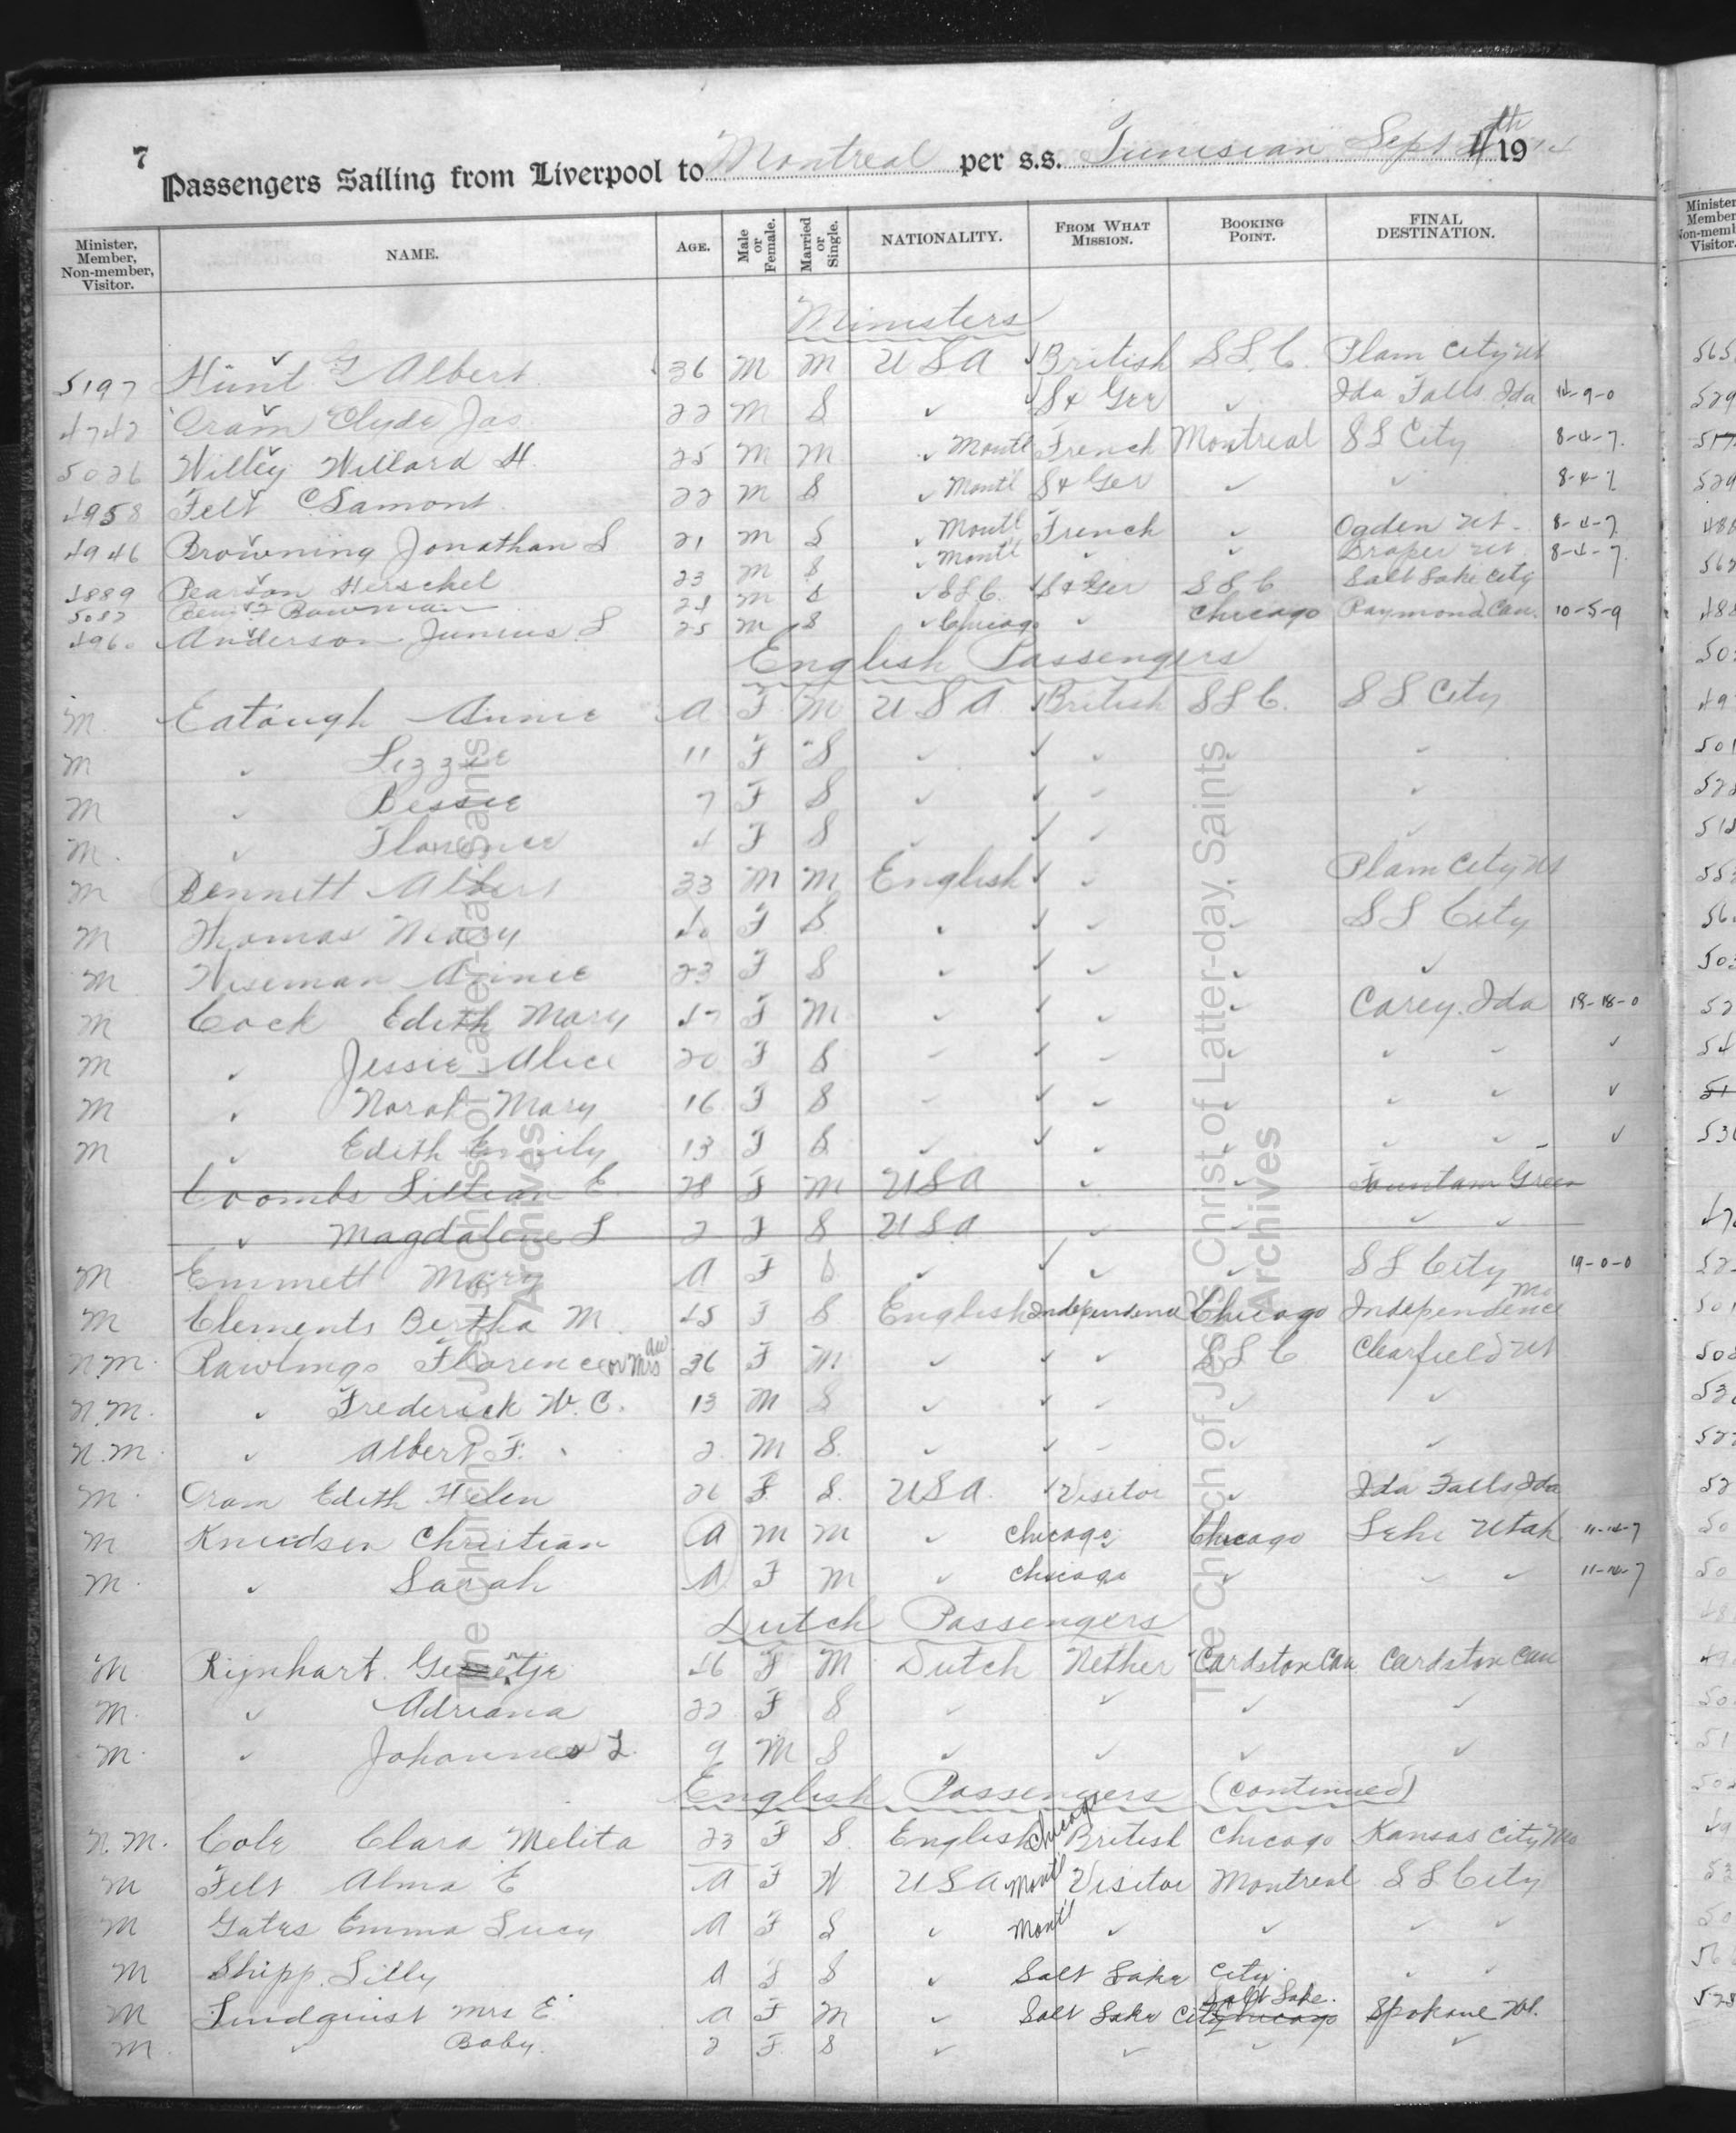 7
Passengers Sailing from Liverpool to Montreal per s.s. Tunisian Sept 4th 1914
Minister, Member, Non-member, Visitor. NAME. AGE. Male or Female. Married or Single. NATIONALITY. FROM WHAT MISSION. BOOKING POINT. FINAL DESTINATION.
Ministers
5197 Hunt G Albert 36 M M USA British S.L.C. Plain City Ut
4742 Oram Clyde Jas 22 M S ✓ S & Ger ✓ Ida Falls Ida 14-9-0
5026 Willey Willard H. 25 M M ✓ Montl French Montreal S L City 8-4-7.
4958 Felt C Lamont 22 M S ✓ Montl S & Ger ✓ ✓ 8-4-7
4946 Browning Jonathan S 21 M S ✓ Montl French ✓ Ogden Ut. 8-4-7
4889 Pearson Herschel 23 M S ✓ Montl ✓ ✓ Draper Ut 8-4-7.
5087 Bowman 24 M S ✓ SLC. S & Ger S L C Salt Lake City
4960 Anderson Junius S 25 M S ✓ Chicago ✓ Chicago Raymond Can. 10-5-9
English Passengers
M. Eatough Annie A F M USA British S L C. S L City
M ✓ Lizzie 11 F S ✓ ✓ ✓ ✓
M ✓ Bessie 7 F S ✓ ✓ ✓ ✓
M. ✓ Florence 4 F S ✓ ✓ ✓ ✓
M Bennett Albert 33 M M English ✓ ✓ Plain City Ut
M Thomas Mary 40 F S ✓ ✓ ✓ S L City
M Wiseman Annie 23 F S ✓ ✓ ✓ ✓
M Cock Edith Mary 47 F M ✓ ✓ ✓ Carey. Ida 18-18-0
M ✓ Jessie Alice 20 F S ✓ ✓ ✓ ✓ ✓ ✓
M ✓ Norah Mary 16 F S ✓ ✓ ✓ ✓ ✓ ✓
M ✓ Edith Emily 13 F S ✓ ✓ ✓ ✓ ✓ ✓
Coombs Lillian E. 28 F M USA ✓ ✓ Fountain Green
✓ Magdaline S 2 F S USA ✓ ✓ ✓ ✓
M Emmett Mary A F S ✓ ✓ ✓ S L City 19-0-0
M Clements Bertha M. 45 F S English Independence Chicago Independence Mo
N.M. Rawlings Florence or Mrs 36 F M ✓ ✓ S L C Clearfield Ut
N.M. ✓ Frederick W. C. 13 M S ✓ ✓ ✓ ✓
N.M ✓ Albert F. 2 M S. ✓ ✓ ✓ ✓
M Oram Edith Helen 26 F S. USA. Visitor ✓ Ida Falls Ida
M Knudsen Christian A M M ✓ Chicago Chicago Lehi Utah 11-14-7
M ✓ Sarah A F M ✓ Chicago ✓ ✓ ✓ 11-14-7
Dutch Passengers
M Rijnhart. 46 F M Dutch Nether Cardston Can Cardston Can
M. ✓ Adriana 22 F S ✓ ✓ ✓ ✓
M. ✓ Johannes L. 9 M S ✓ ✓ ✓ ✓
English Passengers (continued)
N.M. Cole Clara Melita 23 F S. English Chicago British Chicago Kansas City Mo
M Felt Alma E A F W USA Montl Visitor Montreal S L City
M Gates Emma Lucy A F S ✓ Montl ✓ ✓ ✓ ✓
M Shipp. Lilly A F S ✓ Salt Lake City. ✓ ✓
M Lindquist Mrs E A F M ✓ Salt Lake City Salt Lake. Chicago Spokane W.
M. ✓ Baby. 2 F S ✓ ✓ ✓ ✓
The Church of Jesus Christ of Latter-day Saints
Archives
The Church of Jesus Christ of Latter-day Saints
Archives